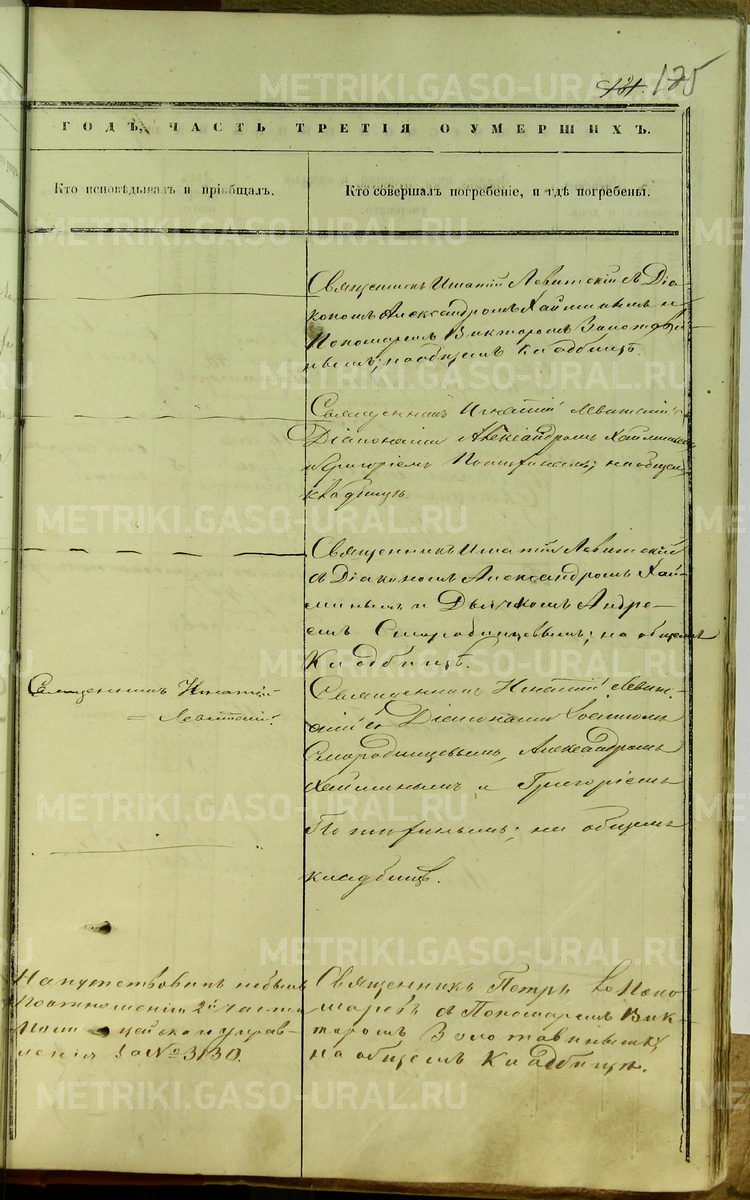 131. 175
ГОДЪ, ЧАСТЬ ТРЕТІЯ О УМЕРШИХЪ.
Кто исповѣдывалъ и пріобщалъ.
Кто совершалъ погребеніе, и гдѣ погребены.
Священникъ Игнатій Левитскій съ Діа-
кономъ Александромъ Хайминымъ и
Пономаремъ Викторомъ Золотави-
нымъ; на общемъ кладбищѣ.
Священникъ Игнатій Левитскій съ
Діаконами Александромъ Хайминымъ
и Григоріемъ; на общемъ
кладбищѣ.
Священникъ Игнатій Левитскій
съ Діакономъ Александромъ Хай-
минымъ и Дьячкомъ Андре-
емъ Смородинцевымъ; на общемъ
Кладбищѣ.
Священникъ Игнатій
= Левитскій.
Священникъ Игнатій Левит-
скій съ Діаконами
Смородинцевымъ, Александромъ
Хайминымъ и Григоріемъ
на общемъ
кладбищѣ.
Напутствованъ небылъ
поотношенію 2й части
Полицейскаго управ-
ленія за № 3130.
Священникъ Петръ Поно-
маревъ съ Пономаремъ Вик-
торомъ Золотавинымъ;
на общемъ Кладбищѣ.
METRIKI.GASO-URAL.RU